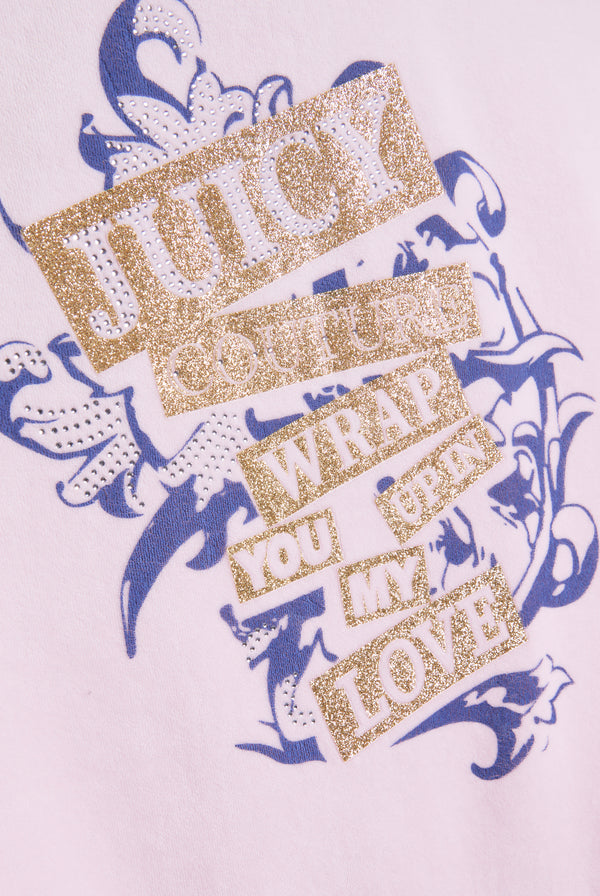 JUICY
COUTURE
WRAP
YOU UP IN
MY
LOVE